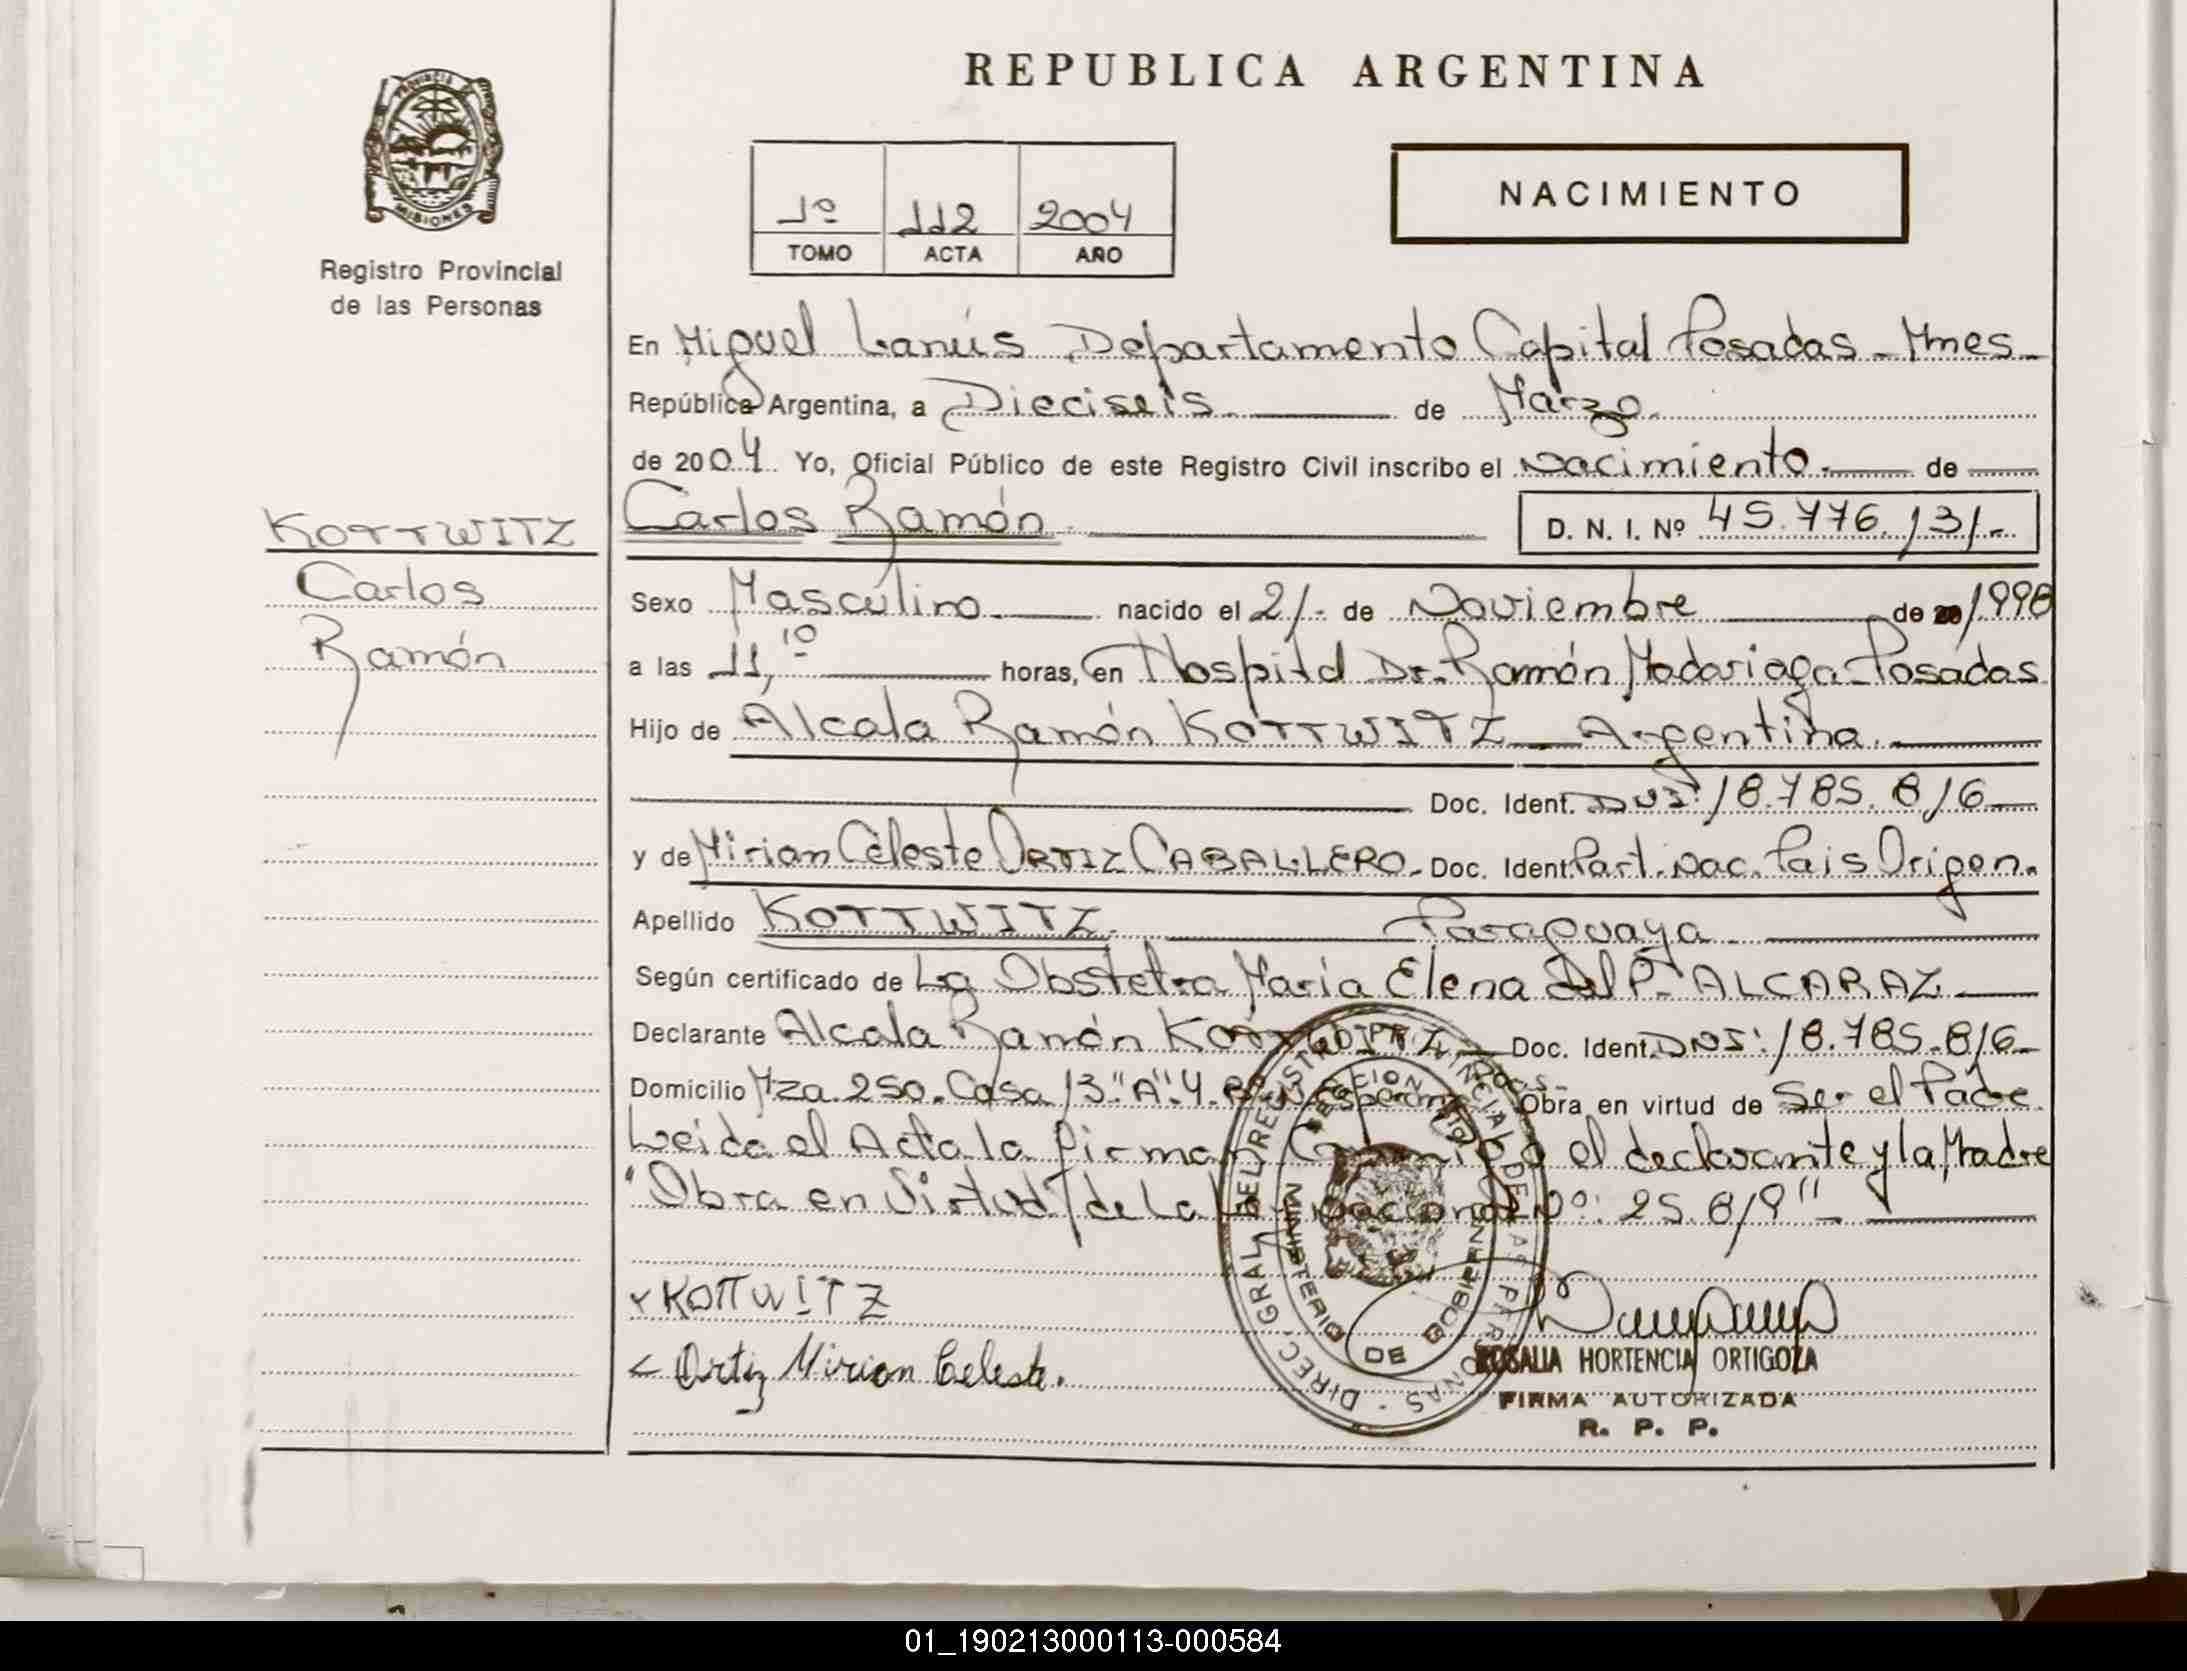 REPUBLICA ARGENTINA
PROVINCIA DE MISIONES
Registro Provincial
de las Personas
1º 112 2004
TOMO ACTA AÑO
NACIMIENTO
En Miguel Lanús Departamento Capital Posadas - Mnes -
República Argentina, a Dieciseis de Marzo
de 2004 Yo, Oficial Público de este Registro Civil inscribo el Nacimiento de
KOTTWITZ
Carlos
Ramón
Carlos Ramón D. N. I. Nº 45.776.131.-
Sexo Masculino nacido el 21.- de Noviembre de 1998
a las 11,10 horas, en Hospital Dr. Ramón Madariaga - Posadas
Hijo de Alcala Ramón KOTTWITZ - Argentina.
Doc. Ident. DNI: 18.785.816
y de Mirian Celeste ORTIZ CABALLERO. Doc. Ident. Part. Nac. Pais Origen.
Apellido KOTTWITZ. Paraguaya
Según certificado de La Obstetra María Elena del P. ALCARAZ
Declarante Alcala Ramón KOTTWITZ Doc. Ident. DNI: 18.785.816
Domicilio Mza. 250. Casa 13 "A". 4. Bº N. Esperanza Pdas. Obra en virtud de Ser el Padre.
Leida el Acta la firman Conmigo el declarante y la Madre
"Obra en Virtud de La Ley Nacional Nº: 25.819"
KOTTWITZ
Ortiz Mirian Celeste.
DIREC. GRAL. DEL REGISTRO PROVINCIAL DE LAS PERSONAS
MINISTERIO DE GOBIERNO
ROSALIA HORTENCIA ORTIGOZA
FIRMA AUTORIZADA
R. P. P.
01_190213000113-000584